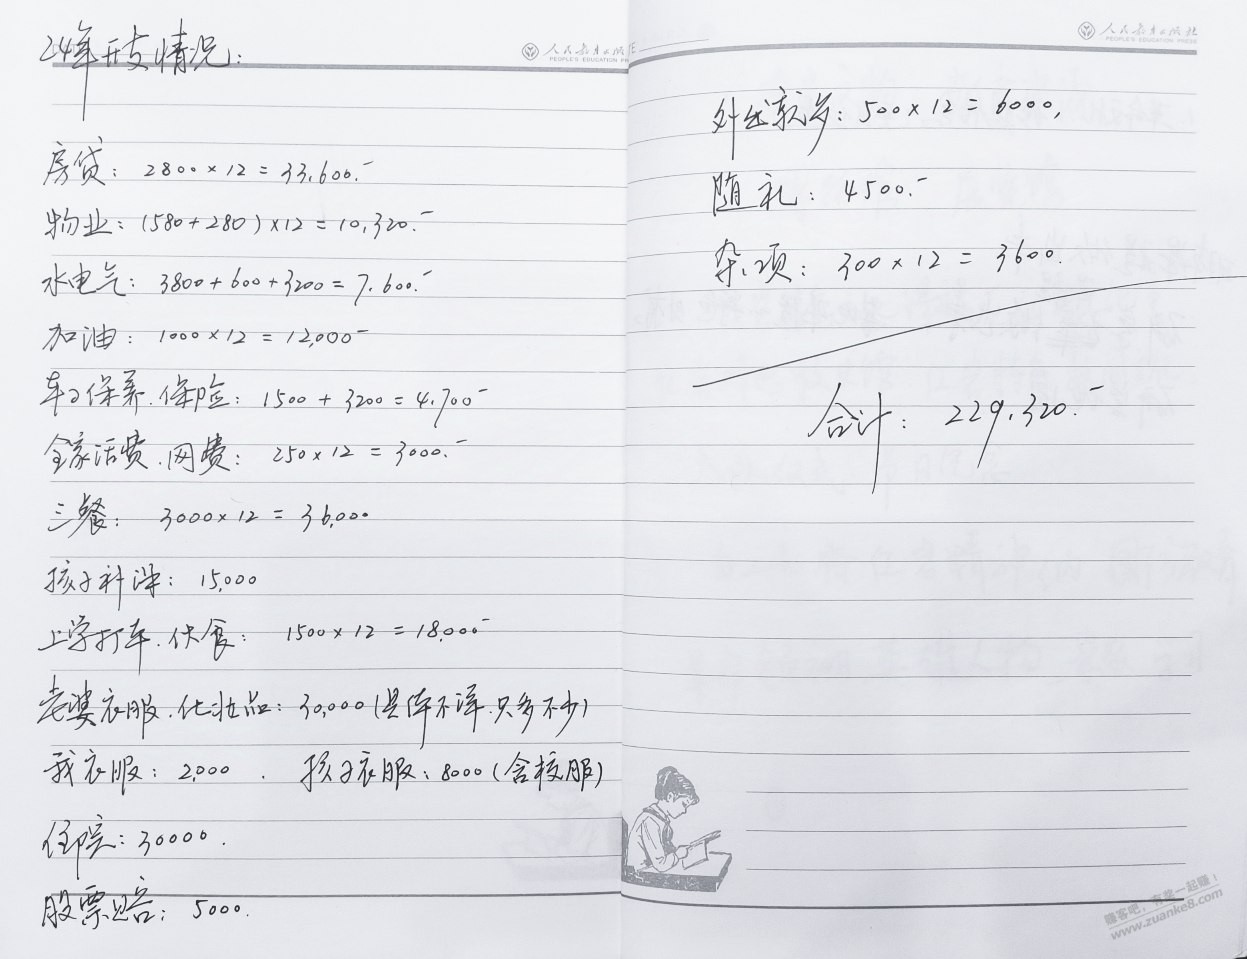 24年开支情况:
人民教育出版社
PEOPLE'S EDUCATION PR
房贷: 2800×12=33,600.-
物业: (580+280)×12=10,320.-
水电气: 3800+600+3200=7,600.-
加油: 1000×12=12,000-
车子保养.保险: 1500+3200=4,700-
全家话费.网费: 250×12=3000.-
三餐: 3000×12=36,000
孩子补课: 15,000
上学打车.伙食: 1500×12=18,000-
老婆衣服.化妆品: 30,000(具体不详.只多不少)
我衣服: 2,000 . 孩子衣服: 8000(含校服)
住院: 30000.
股票亏: 5000.
人民教育出版社
PEOPLE'S EDUCATION PRESS
外出就餐: 500×12=6000,
随礼: 4500.-
杂项: 300×12=3600.
合计: 229,320.-
赚客吧,有奖一起赚!
www.zuanke8.com